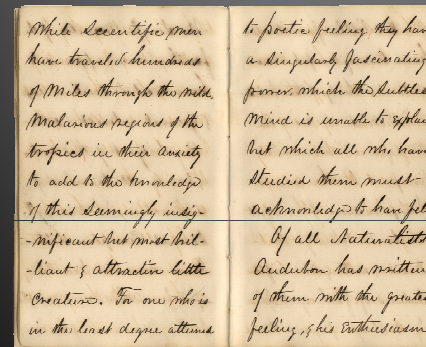 While Scientific men
have traveled hundreds
of Miles through the wild,
Malarious regions of the
tropics in their anxiety
to add to the knowledge
of this seemingly insig-
-nificant but most bril-
-liant & attractive little
creature. For one who is
in the least degree attuned
to poetic feeling they hav
a singularly fascinating
power, which the subtles
Mind is unable to explai
but which all who have
studied them must
acknowledge to have fel
Of all Naturalists
Audubon has written
of them with the greates
feeling, & his Enthusiasm